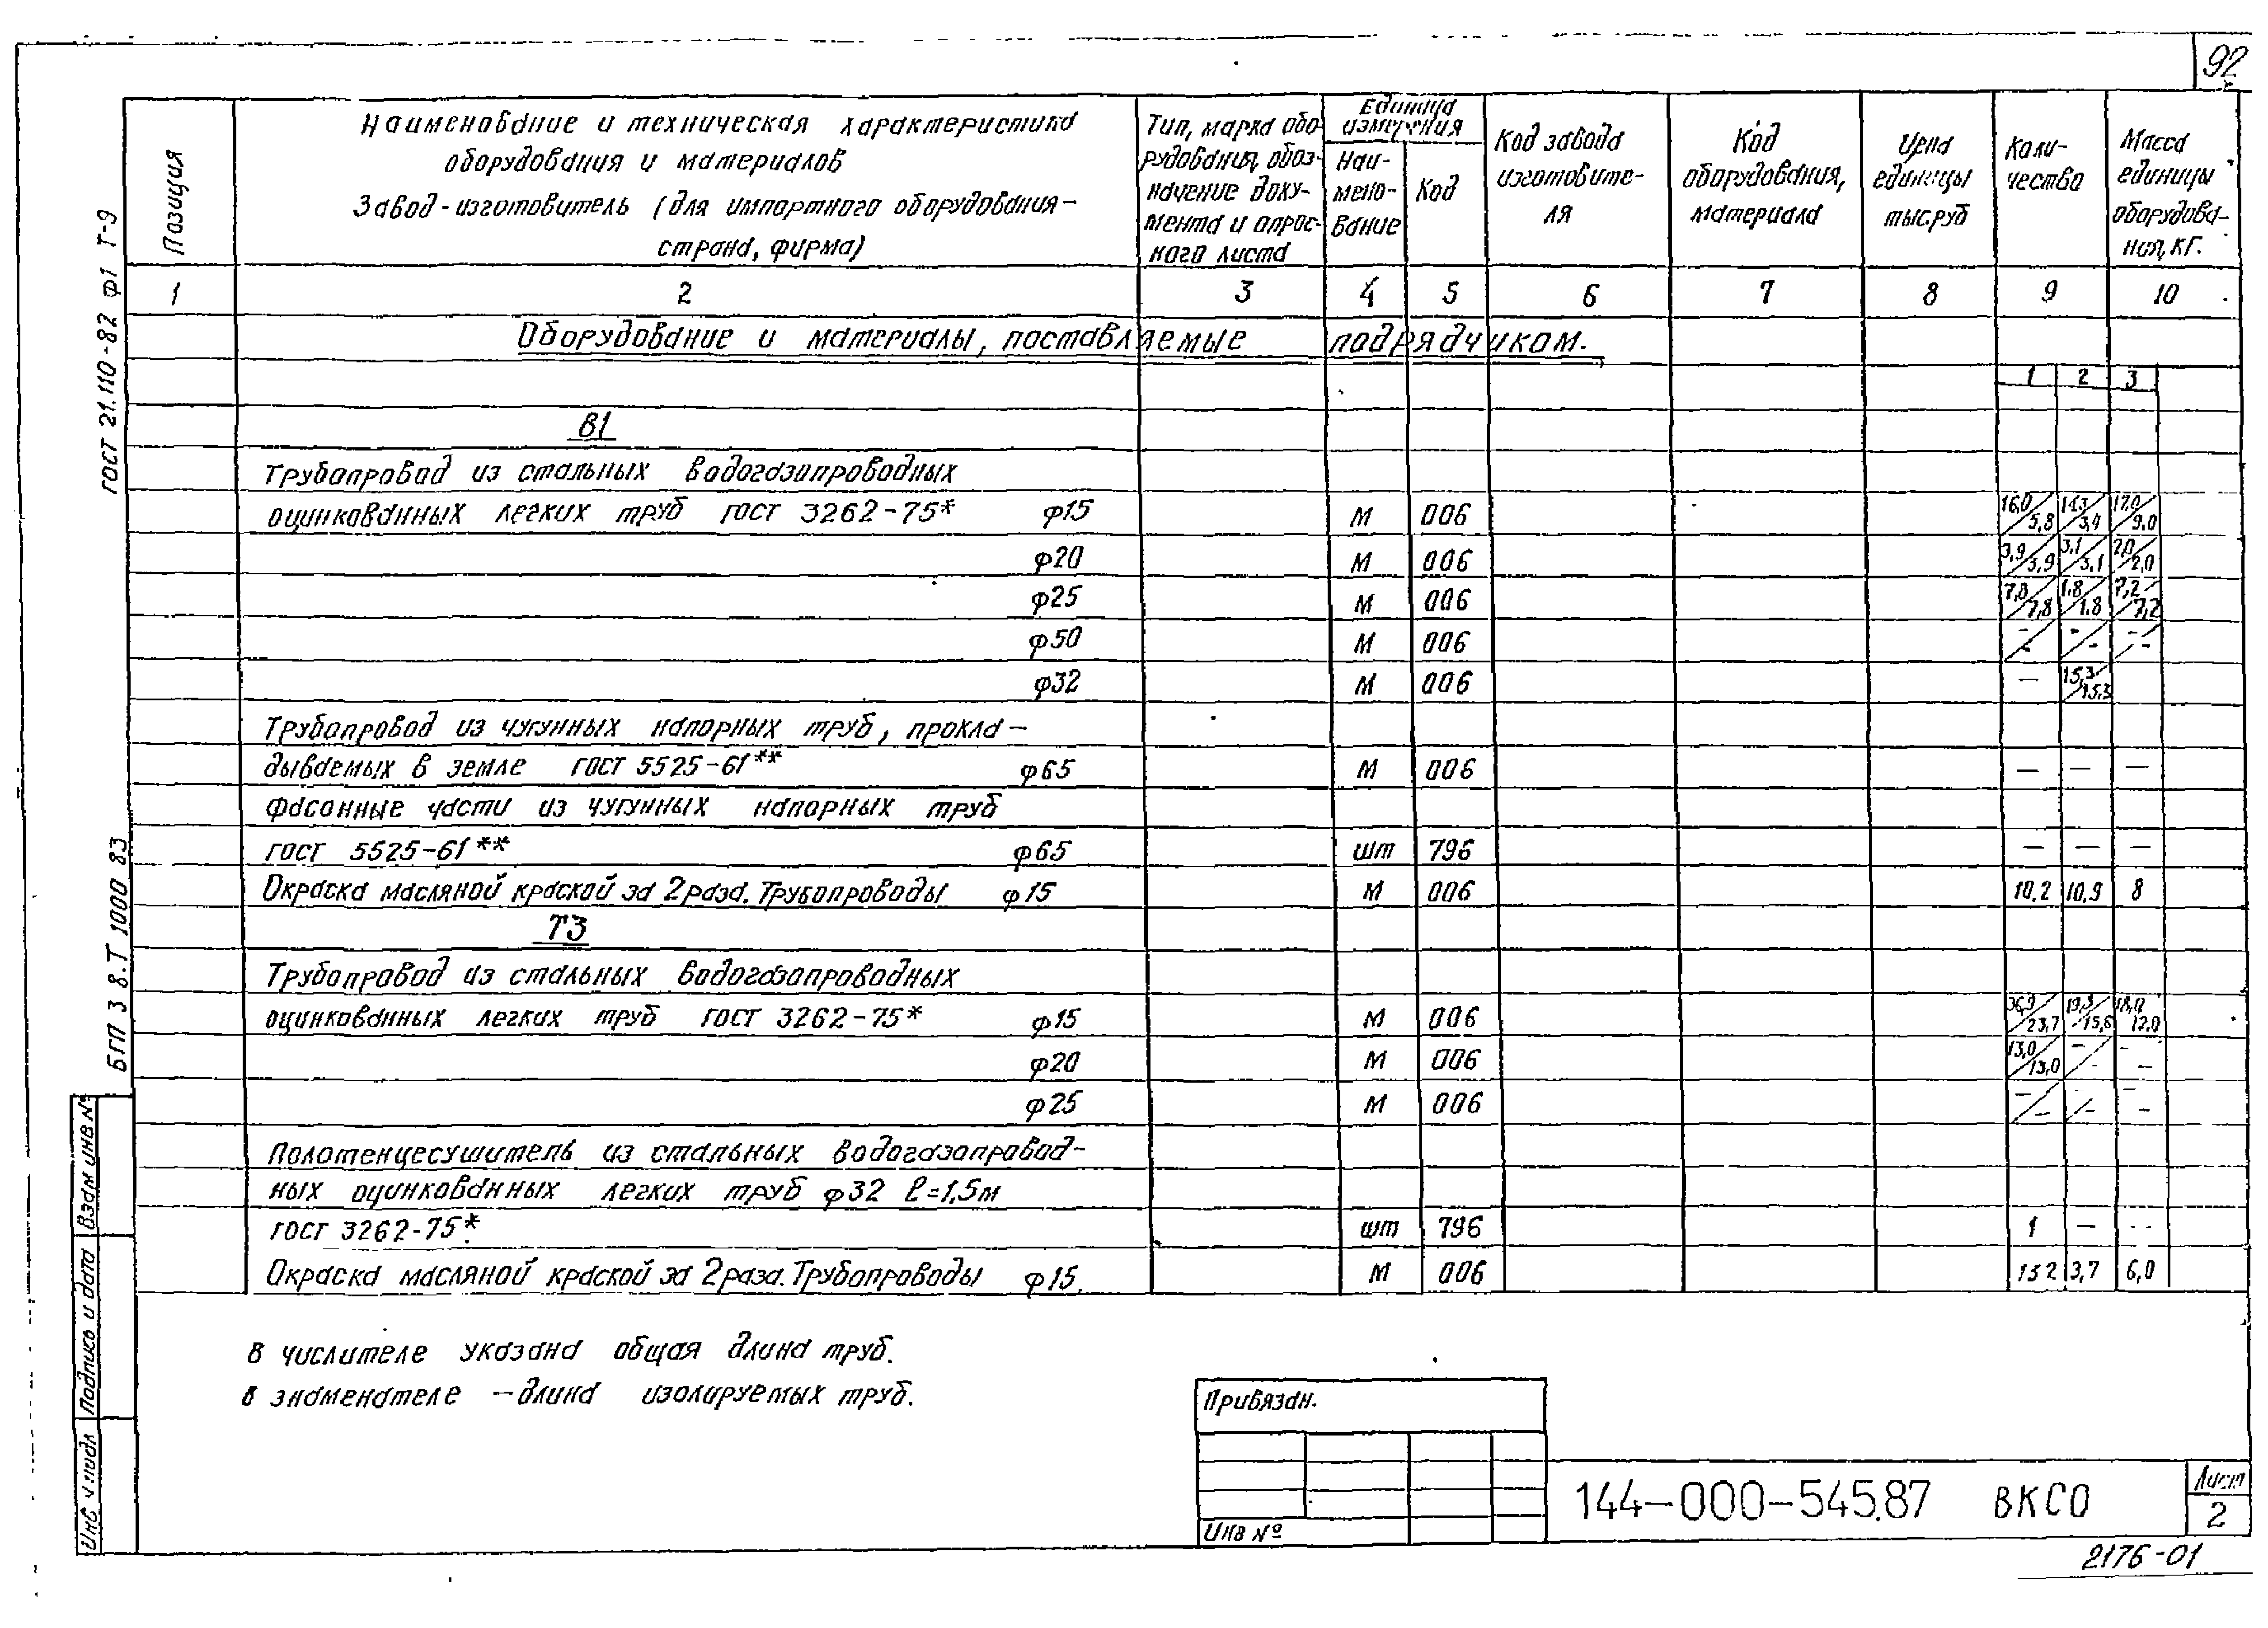 92
Позиция
Наименование и техническая характеристика
оборудования и материалов
Завод-изготовитель (для импортного оборудования-
страна, фирма)
Тип, марка обо-
рудования, обоз-
начение доку-
мента и опрос-
ного листа
Единица
измерения
Наи-
мено-
вание
Код
Код завода
изготовите-
ля
Код
оборудования,
материала
Цена
единицы
тыс.руб
Коли-
чество
Масса
единицы
оборудова-
ния, кг.
1 2 3 4 5 6 7 8 9 10
Оборудование и материалы, поставляемые подрядчиком.
1 2 3
В1
Трубопровод из стальных водогазопроводных
оцинкованных легких труб ГОСТ 3262-75* φ15 м 006 16,0/5,8 14,3/3,4 17,0/9,0
φ20 м 006 3,9/3,9 3,1/3,1 2,0/2,0
φ25 м 006 7,8/7,8 1,8/1,8 7,2/7,2
φ50 м 006 -/- -/- -/-
φ32 м 006 — 15,3/15,3
Трубопровод из чугунных напорных труб, прокла-
дываемых в земле ГОСТ 5525-61** φ65 м 006 — — —
Фасонные части из чугунных напорных труб
ГОСТ 5525-61** φ65 шт 796 — — —
Окраска масляной краской за 2 раза. Трубопроводы φ15 м 006 10,2 10,9 8
Т3
Трубопровод из стальных водогазопроводных
оцинкованных легких труб ГОСТ 3262-75* φ15 м 006 36,9/23,7 19,3/15,6 18,0/12,0
φ20 м 006 13,0/13,0 -/- - -
φ25 м 006 -/- -/- - -
Полотенцесушитель из стальных водогазопровод-
ных оцинкованных легких труб φ32 ℓ=1,5м
ГОСТ 3262-75* шт 796 1 — --
Окраска масляной краской за 2 раза. Трубопроводы φ15 м 006 15 2 3,7 6,0
В числителе указана общая длина труб.
в знаменателе — длина изолируемых труб.
Привязан.
Инв №
144-000-545.87 ВКСО
Лист
2
2176-01
ГОСТ 21.110-82 Ф1 Т-9
БГП З 8.Т 1000 83
Взам инв №
Подпись и дата
Инв № подл